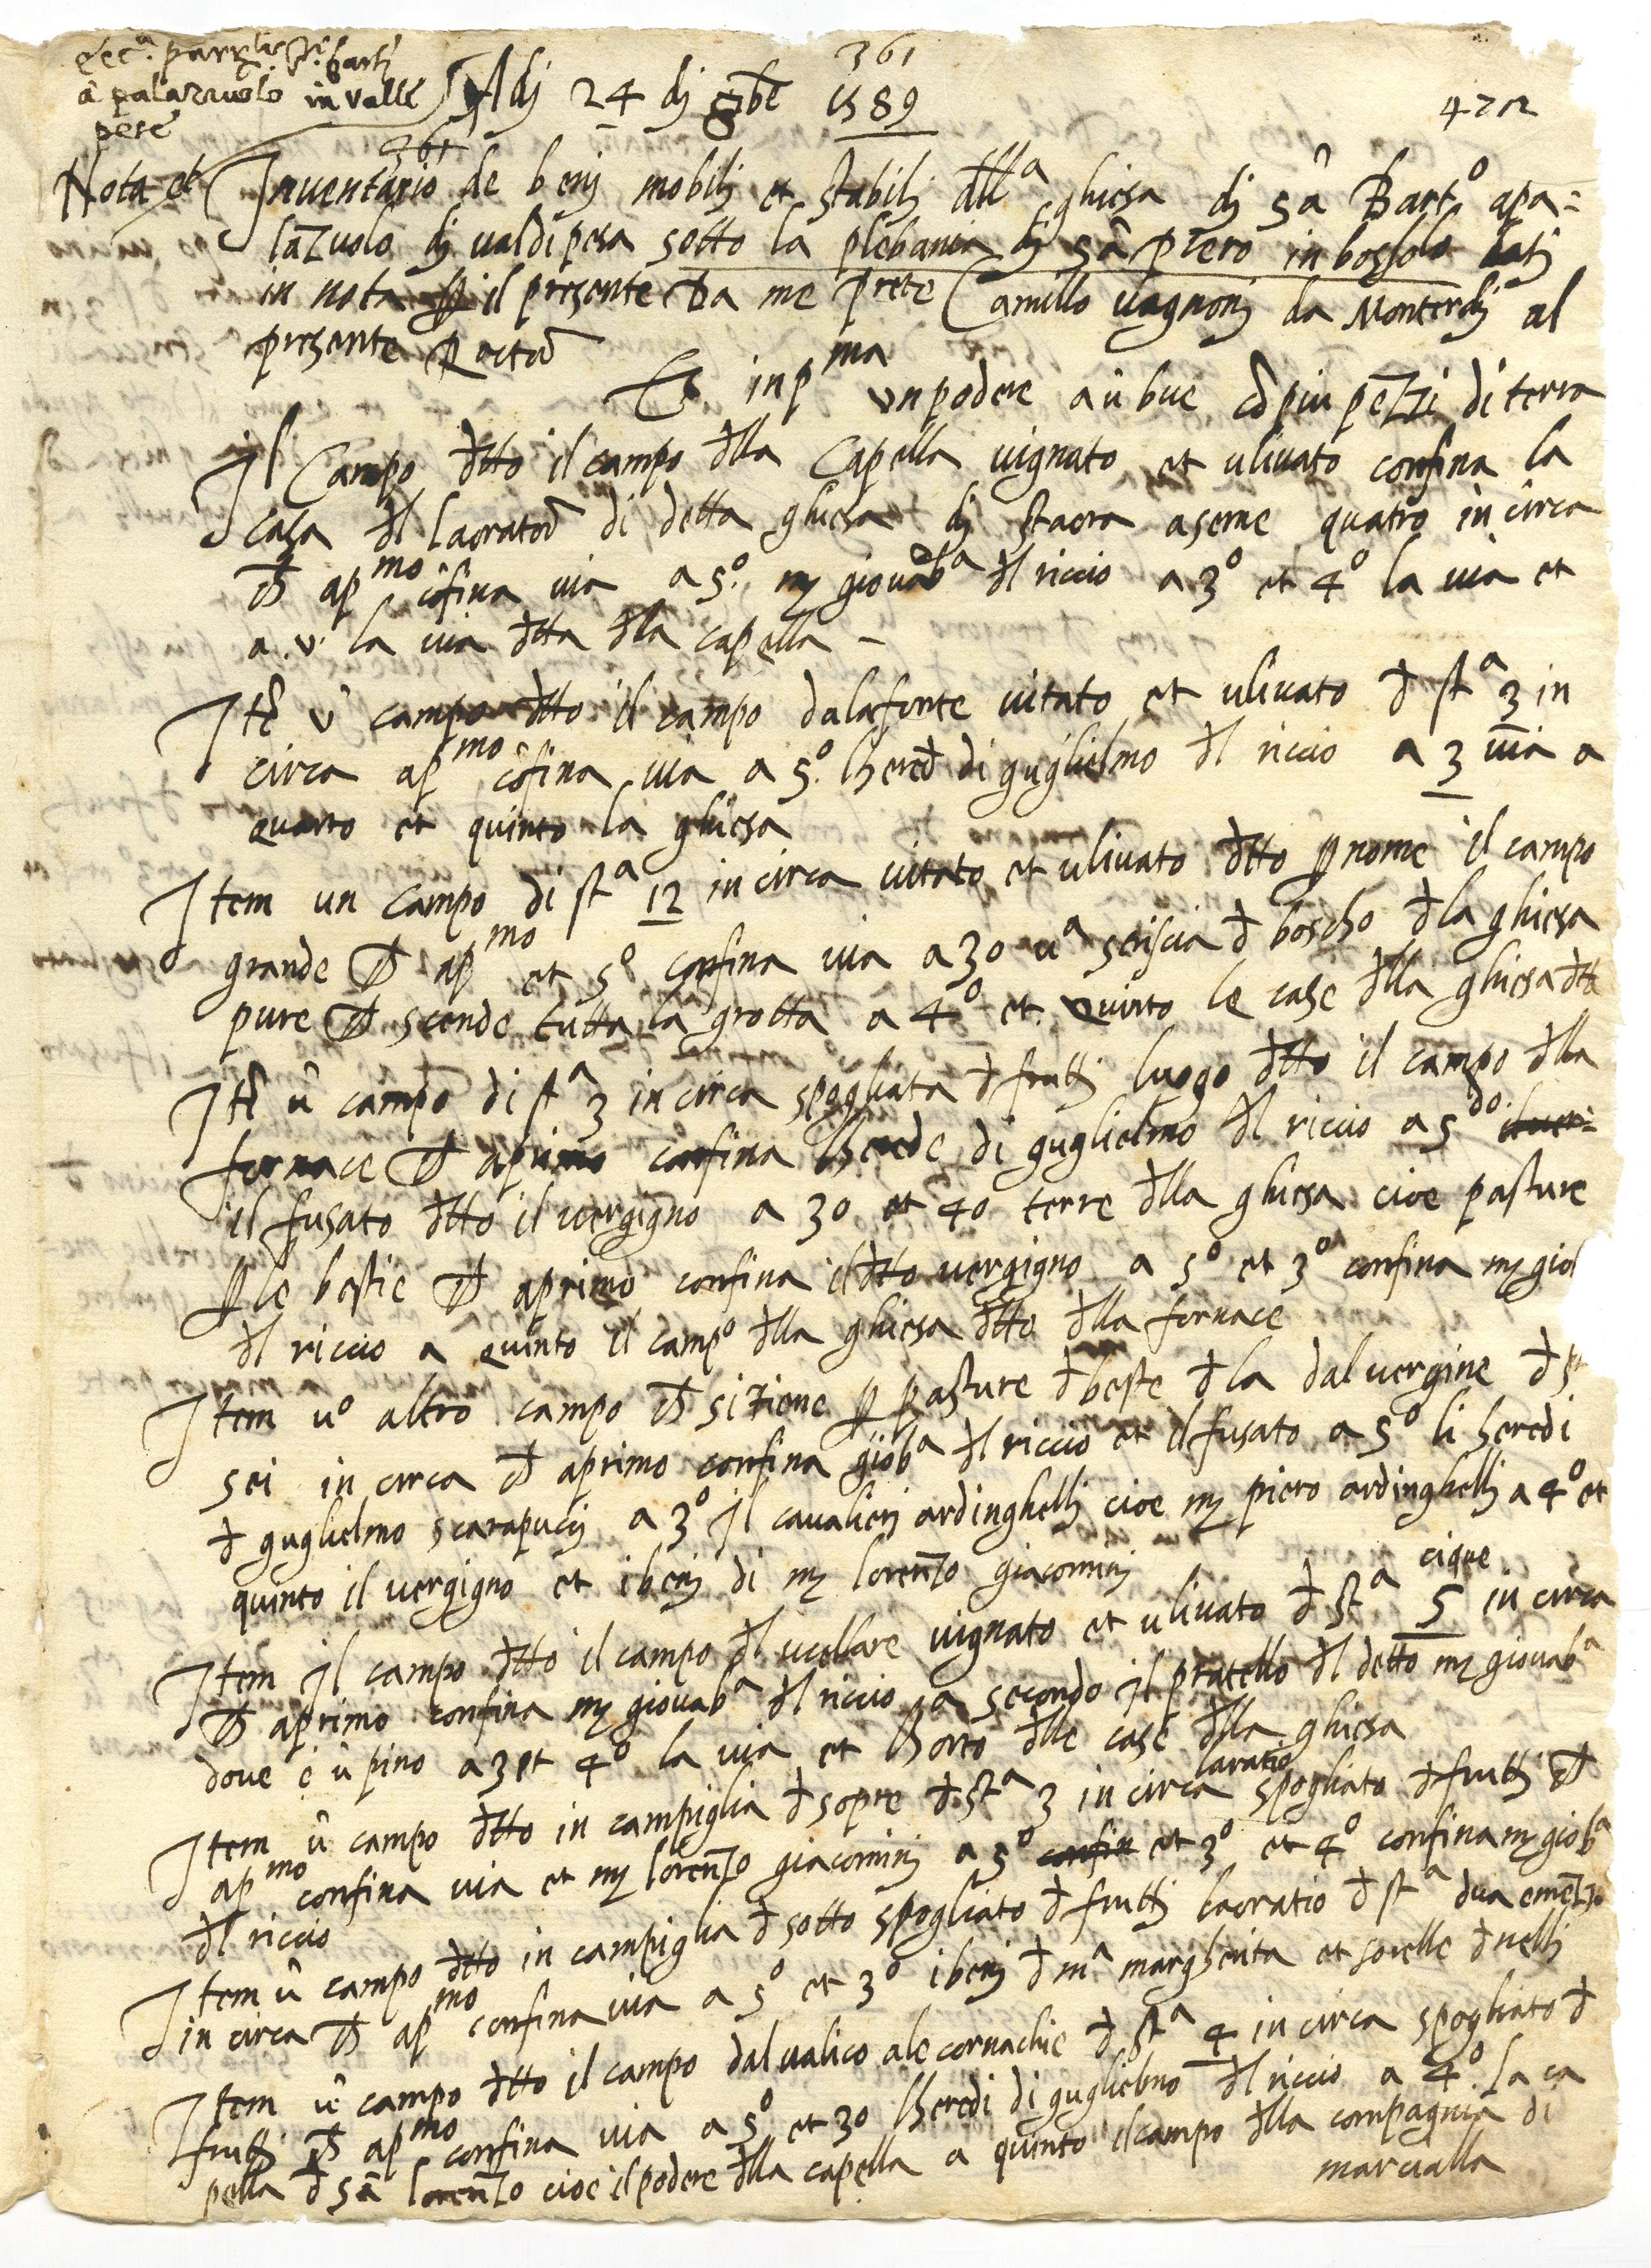 Ecc.a parr.le S.ti Barti
à palazzuolo in valle
pese
361
Adj 24 dj 8bre 1589
472
361
Nota et Inventario de benj mobilj et stabilj dlla ghiesa dj sâ Barto apa=
lazuolo dj valdipesa sotto la plebania dj sâ piero in bossolo dati
in nota p il presente da me prete Camillo vagnonj da Monterchj al
presente Rector
Et inpma un podere a û bue cō piu pezzi di terra
Il Campo dtto il campo dlla Capella vignato et ulivato confina la
casa dl laorator di detta ghiesa dj staora a seme quatro in circa
ch apmo cōfina via a 5o. mz giovāba dl riccio a 3o et 4o la via et
a .v. la via dtta dla capella -
Itē û campo dtto il campo dalafonte vitato et ulivato d sta 3 in
circa apmo cōfina via a 5o. lhered di guglielmo dl riccio a 3 via a
quarto et quinto la ghiesa
Item un campo di sta 12 in circa vitato et ulivato dtto p nome il campo
grande ch apmo et 5o confina via a 3o ua striscia d boscho dla ghiesa
pure ch scende tutta la grotta a 4o et quinto le case dlla ghiesa dtta
Itē û campo di sta 3 in circa spogliata d frutti luogo dtto il campo dlla
fornace ch aprimo confina lherede di guglielmo dl riccio a 5do il ver=
il fusato dtto il vergigno a 3o et 4o terre dlla ghiesa cioe pasture
p le bestie ch aprimo confina il dtto vergigno a 5o et 3o confina mz gio
dl riccio a quinto il campo dlla ghiesa dtto dlla fornace
Item uo altro campo ch si tiene p pasture d beste d la dal vergine d st
sei in circa ch aprimo confina gioba dl riccio et il fusato a 5o li heredi
d guglielmo scarapucij a 3o Il cavalierj ardinghellj cioe mz piero ardinghellj a 4o et
quinto il vergigno et i benj di mz lorenzo giacominj
cique
Item Il campo dtto il campo dl ucellare vignato et ulivato d sta 5 in circa
ch aprimo confina mz giovaba dl riccio a secondo il pratello dl detto mz giovaba
dove è û pino a 3 et 4o la via et lhorto dlle case dlla ghiesa
laratio
Item û campo dtto in campiglia d sopre d sta 3 in circa spogliato d frutti ch
apmo confina via et mz lorenzo giacominj a 5o confin et 3o et 4o confina mz gioba
dl riccio
Item û campo dtto in campiglia d sotto spogliato d frutti laoratio d sta dua emēzo
in circa ch apmo confina via a 5o et 3o i benj d ma margherita et sorelle d nelli
Item û campo dtto il campo dal valico ale cornachie d sta 4 in circa spogliato d
frutti ch apmo confina via a 5o et 3o lheredi di guglielmo dl riccio a 4o. la ca
pella d sâ lorenzo cioe il podere dlla capella a quinto il campo dlla compagnia di
marcialla